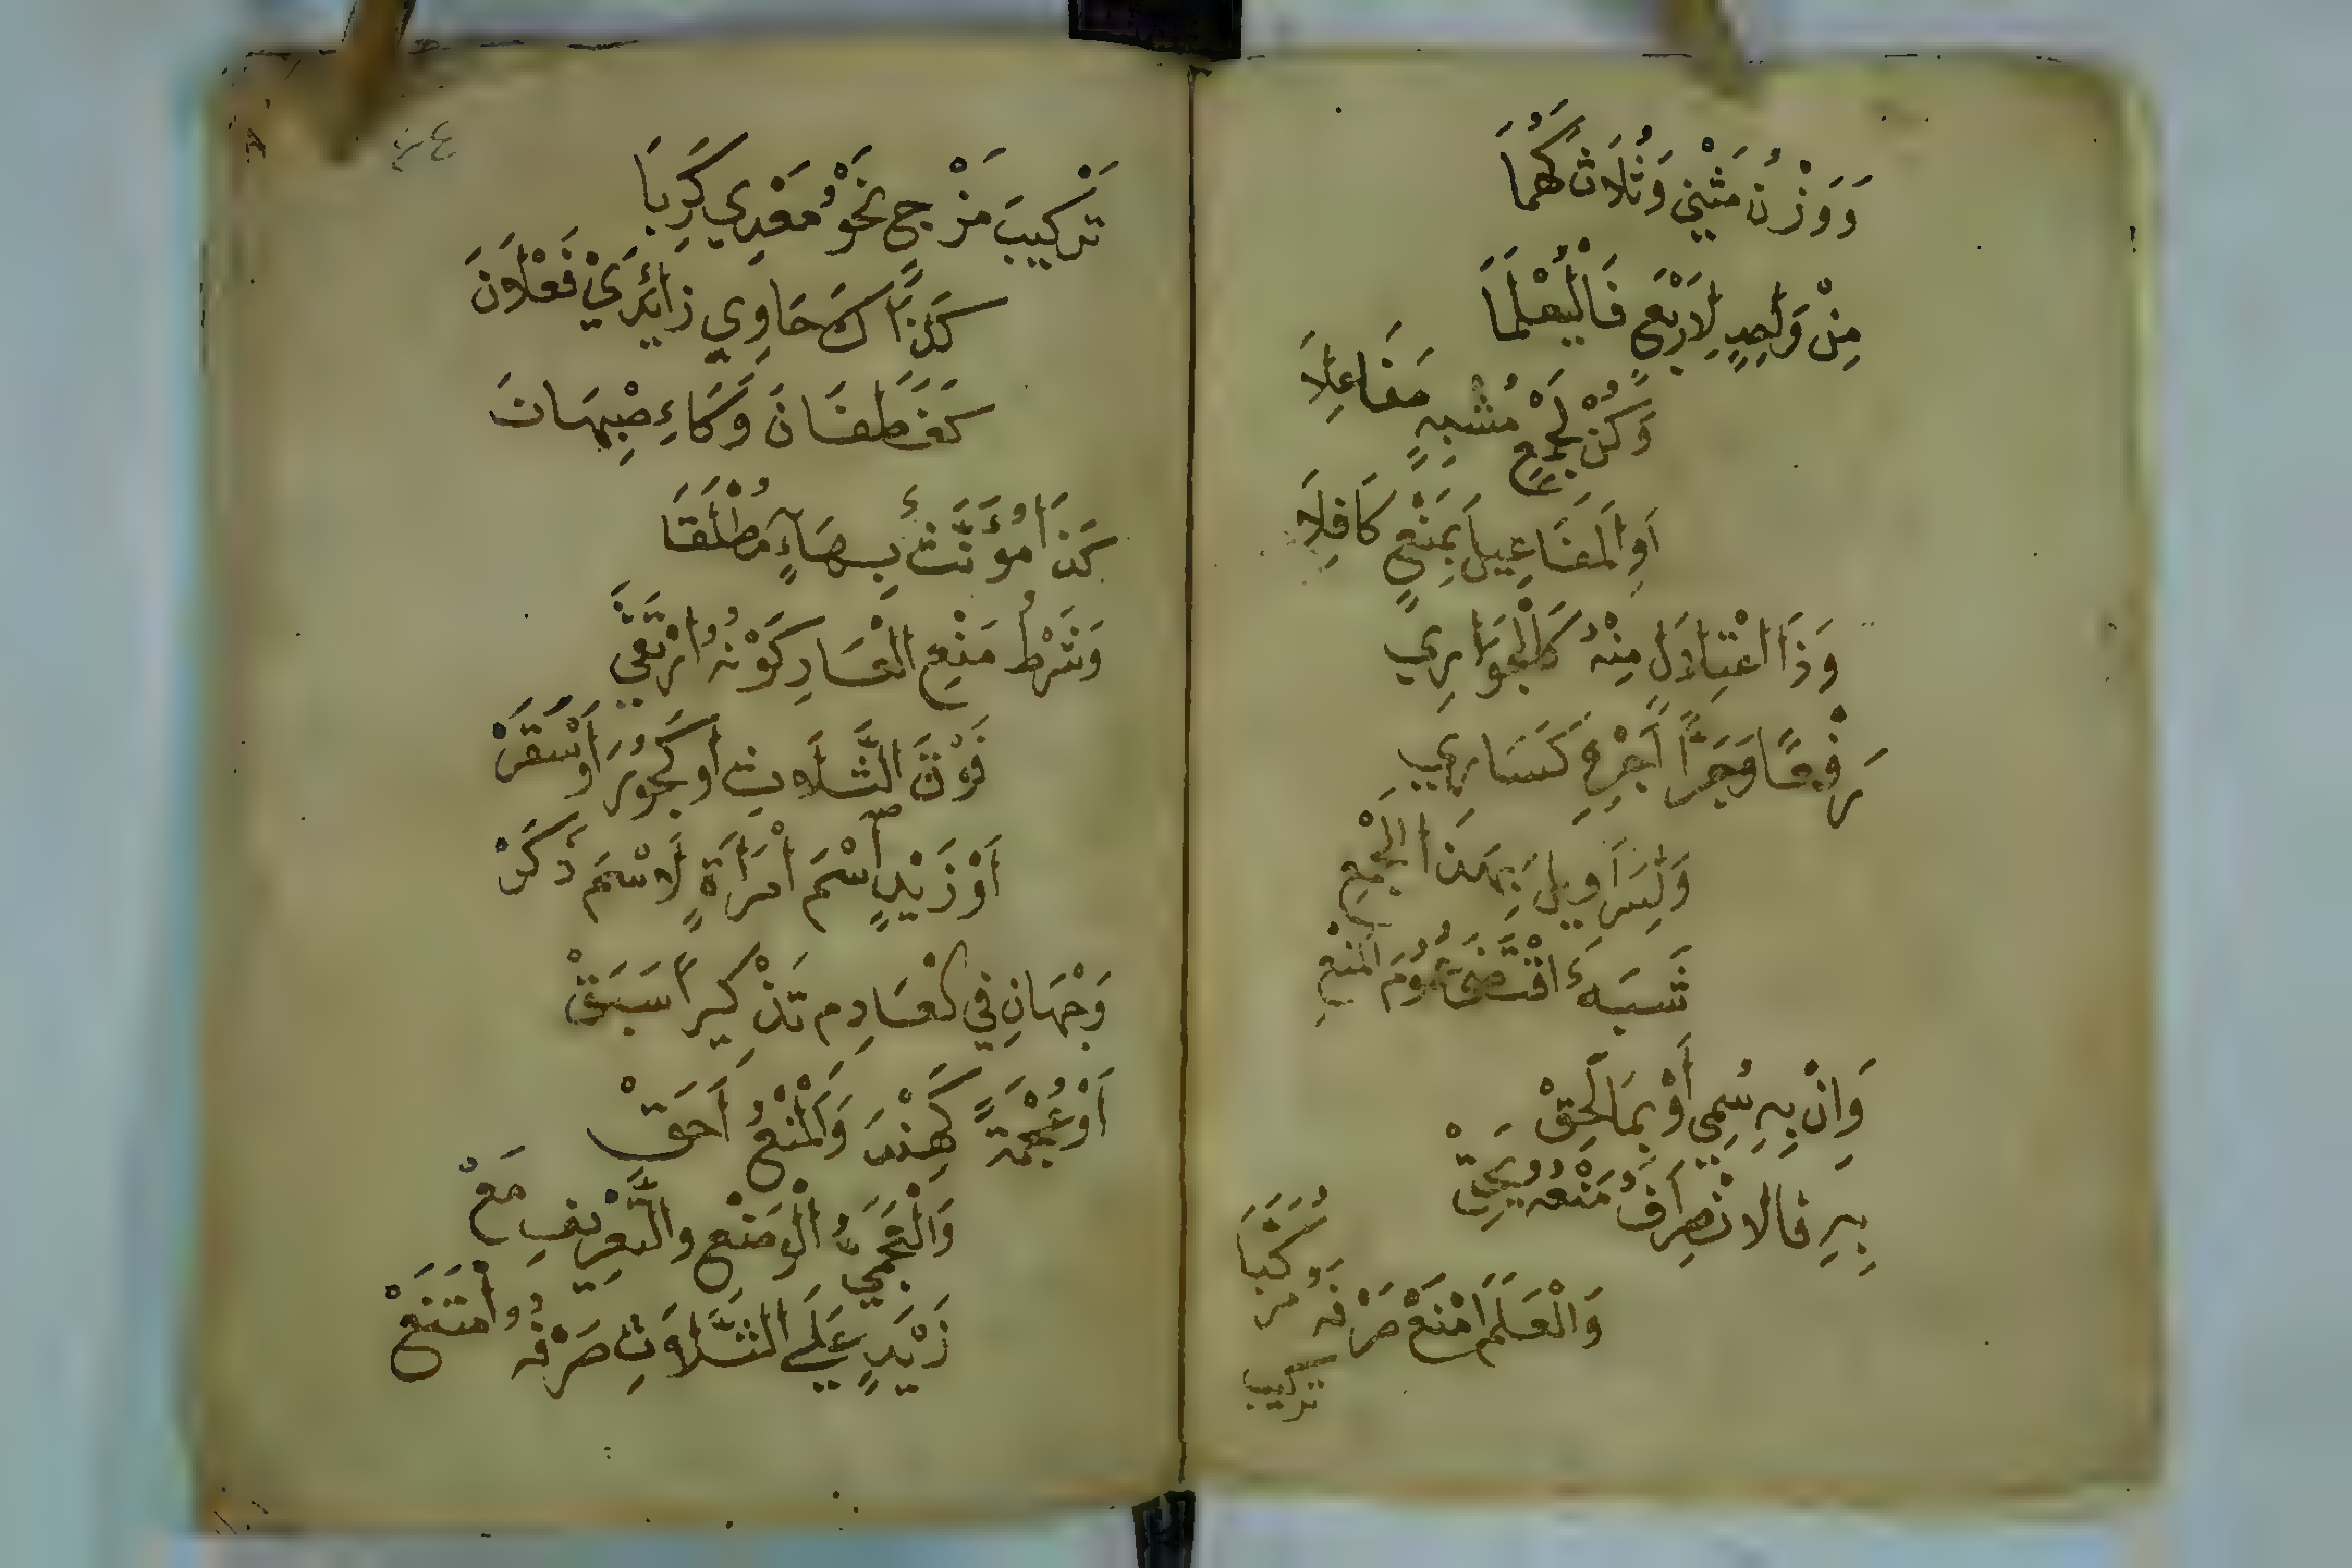 وَوَزْنُ مَثْنَي وَثُلَاثَ كَهُمَا
مِنْ وَاحِدٍ لِاَرْبَعٍ فَالْيُعْلَمَا
وَكُنْ لِجَمْعٍ مُشْبِهٍ مَفَاعِلَا
اَوِالْمَفَاعِيلَ بِمَنْعٍ كَافِلَا
وَذَا اعْتِلَالٍ مِنْهُ كَالْجَوَارِي
رَفْعًا وَجَرًّا اَجْرِهِ كَسَارِي
وَلِسَرَاوِيلَ بِهَذَا الْجَمْعِ
شَبَهٌ اقْتَضَى عُمُومَ الْمَنْعِ
وَاِنْ بِهِ سُمِّي اَوْ بِمَا لَحِقْ
بِهِ فَالانْصِرَافُ مَنْعُهُ يَحِقّْ
وَالْعَلَمَ امْنَعْ صَرْفَهُ مُرَكَّبَا
تركيب
٤٣
تَرْكِيبَ مَزْجٍ نَحْوُ مَعْدِي كَرِبَا
كَذَاكَ حَاوِي زَائِدَيْ فَعْلَانَ
كَغَطَفَانَ وَكَاءِصْبِهَانَ
كَذَا مُؤَنَّثٌ بِهَاءٍ مُطْلَقَا
وَشَرْطُ مَنْعِ الْعَارِ كَوْنُهُ ارْتَقَي
فَوْقَ الثَّلَاثِ اَوْ كَجُورَ اَوْ سَقَرْ
اَوْ زَيْدٍ اسْمَ امْرَاَةٍ لَا اسْمَ ذَكَرْ
وَجْهَانِ فِي الْعَادِمِ تَذْكِيرًا سَبَقْ
اَوْ عُجْمَةً كَهِنْدَ وَالْمَنْعُ اَحَقْ
وَالْعَجَمِيُّ الْوَضْعِ والتَّعْرِيفِ مَعْ
زَيْدٍ عَلَي الثَّلَاثِ صَرْفُهُ امْتَنَعْ